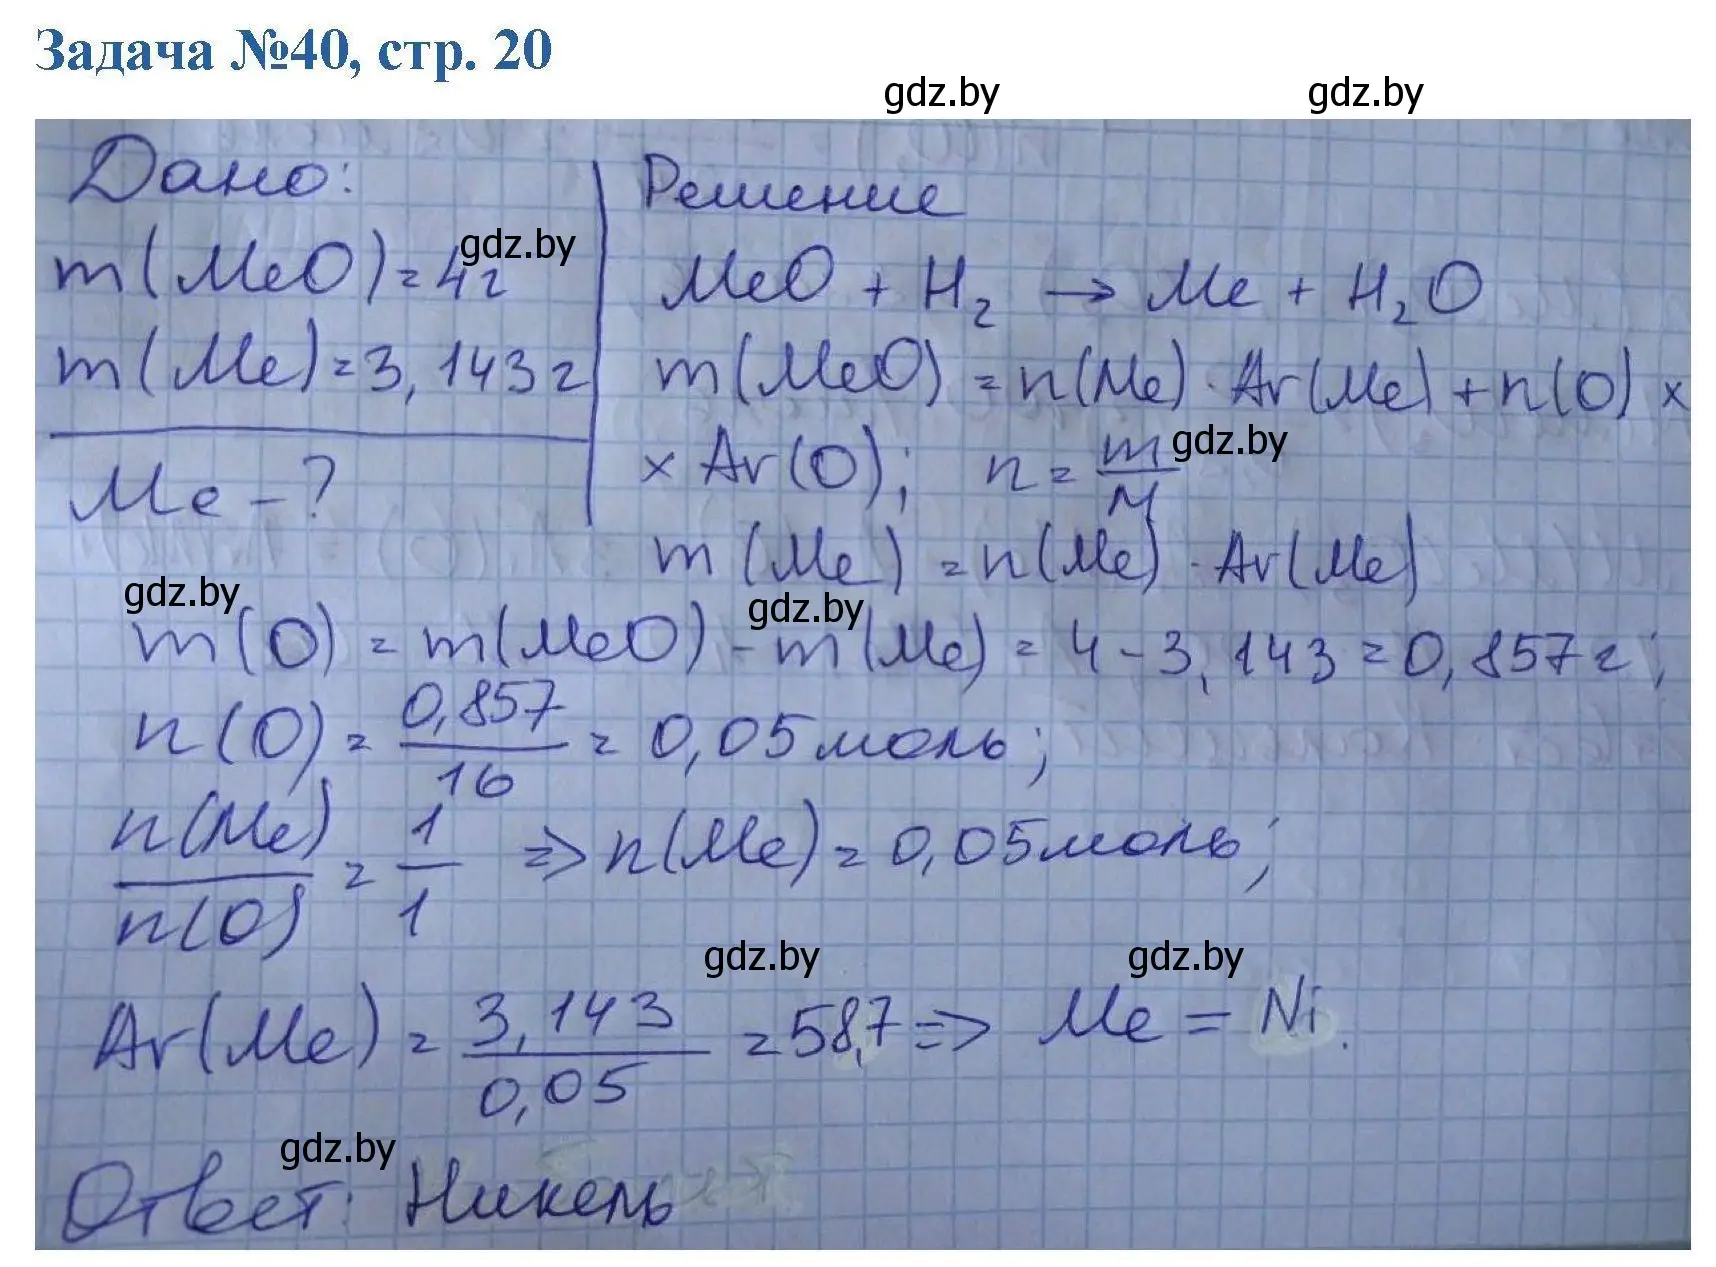 Задача №40, стр. 20
gdz.by gdz.by
Дано: Решение
gdz.by
m(MeO) = 4г MeO + H₂ → Me + H₂O
m(Me) = 3,143г m(MeO) = n(Me) · Ar(Me) + n(O) ×
Me - ? × Ar(O); n = m/M gdz.by
m(Me) = n(Me) · Ar(Me)
gdz.by gdz.by
m(O) = m(MeO) - m(Me) = 4 - 3,143 = 0,857г;
n(O) = 0,857/16 = 0,05 моль;
n(Me)/n(O) = 1/1 => n(Me) = 0,05 моль;
gdz.by gdz.by
Ar(Me) = 3,143/0,05 = 58,7 => Me = Ni.
gdz.by
Ответ: Никель